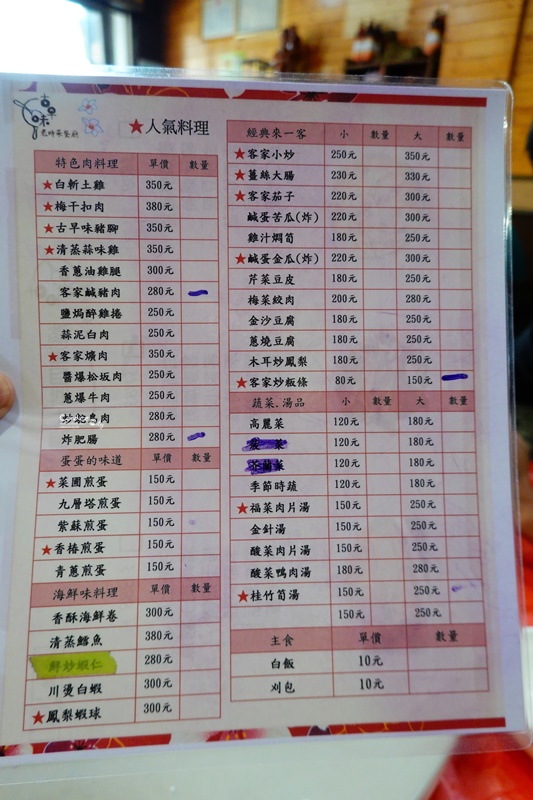 味
老時菜餐廳
★人氣料理
特色肉料理 單價 數量
★白斬土雞 350元
★梅干扣肉 380元
★古早味豬腳 350元
★清蒸蒜味雞 350元
香蔥油雞腿 300元
客家鹹豬肉 280元
鹽焗醉雞捲 250元
蒜泥白肉 250元
★客家爌肉 350元
醬爆松坂肉 250元
蔥爆牛肉 250元
炒鴕鳥肉 280元
炸肥腸 280元
蛋蛋的味道 單價 數量
★菜圃煎蛋 150元
九層塔煎蛋 150元
紫蘇煎蛋 150元
★香椿煎蛋 150元
青蔥煎蛋 150元
海鮮味料理 單價 數量
香酥海鮮卷 300元
清蒸鱈魚 380元
鮮炒蝦仁 280元
川燙白蝦 300元
★鳳梨蝦球 300元
經典來一客 小 數量 大 數量
★客家小炒 250元 350元
★薑絲大腸 230元 330元
★客家茄子 220元 300元
鹹蛋苦瓜(炸) 220元 300元
雞汁燜筍 180元 250元
★鹹蛋金瓜(炸) 220元 300元
芹菜豆皮 180元 250元
梅菜絞肉 200元 280元
金沙豆腐 180元 250元
蔥燒豆腐 180元 250元
木耳炒鳳梨 180元 250元
★客家炒粄條 80元 150元
蔬菜.湯品 小 數量 大 數量
高麗菜 120元 180元
菜 120元 180元
菜 120元 180元
季節時蔬 120元 180元
★福菜肉片湯 150元 250元
金針湯 150元 250元
酸菜肉片湯 150元 250元
酸菜鴨肉湯 180元 280元
★桂竹筍湯 150元 250元
150元 250元
主食 單價 數量
白飯 10元
刈包 10元